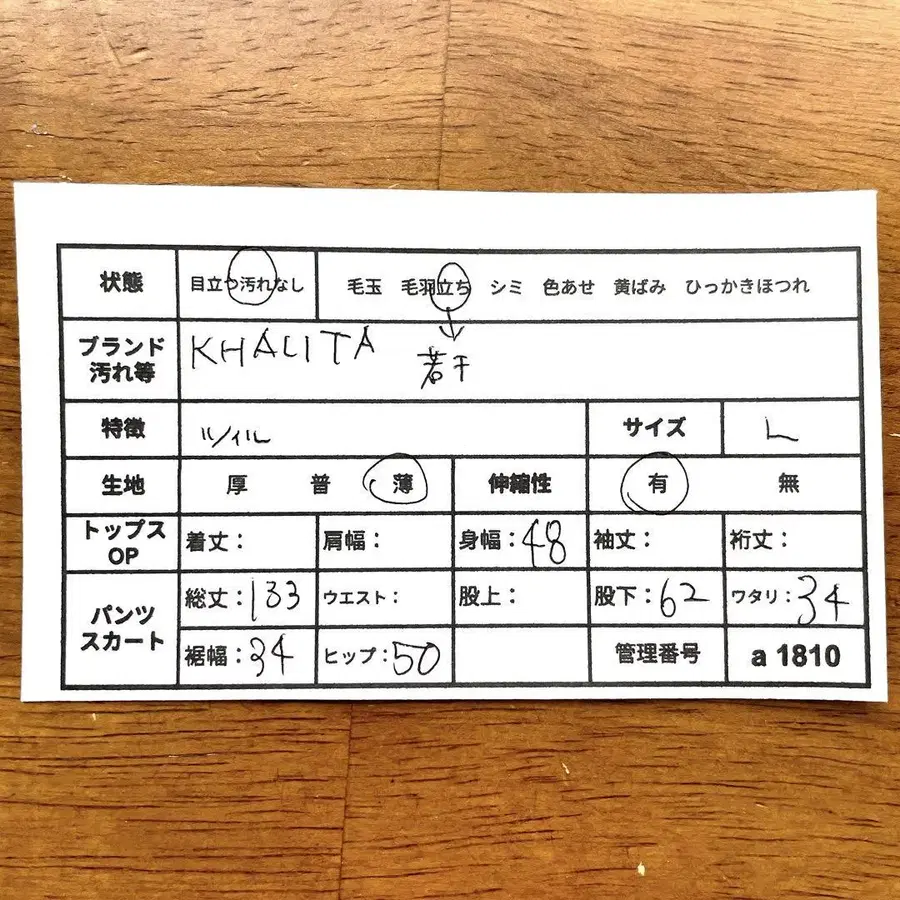 状態 目立つ汚れなし 毛玉 毛羽立ち シミ 色あせ 黄ばみ ひっかきほつれ
ブランド 汚れ等 KHALITA 若干
特徴 ツイル サイズ L
生地 厚 普 薄 伸縮性 有 無
トップス OP 着丈: 肩幅: 身幅:48 袖丈: 裄丈:
パンツ スカート 総丈:133 ウエスト: 股上: 股下:62 ワタリ:34
裾幅:34 ヒップ:50 管理番号 a 1810